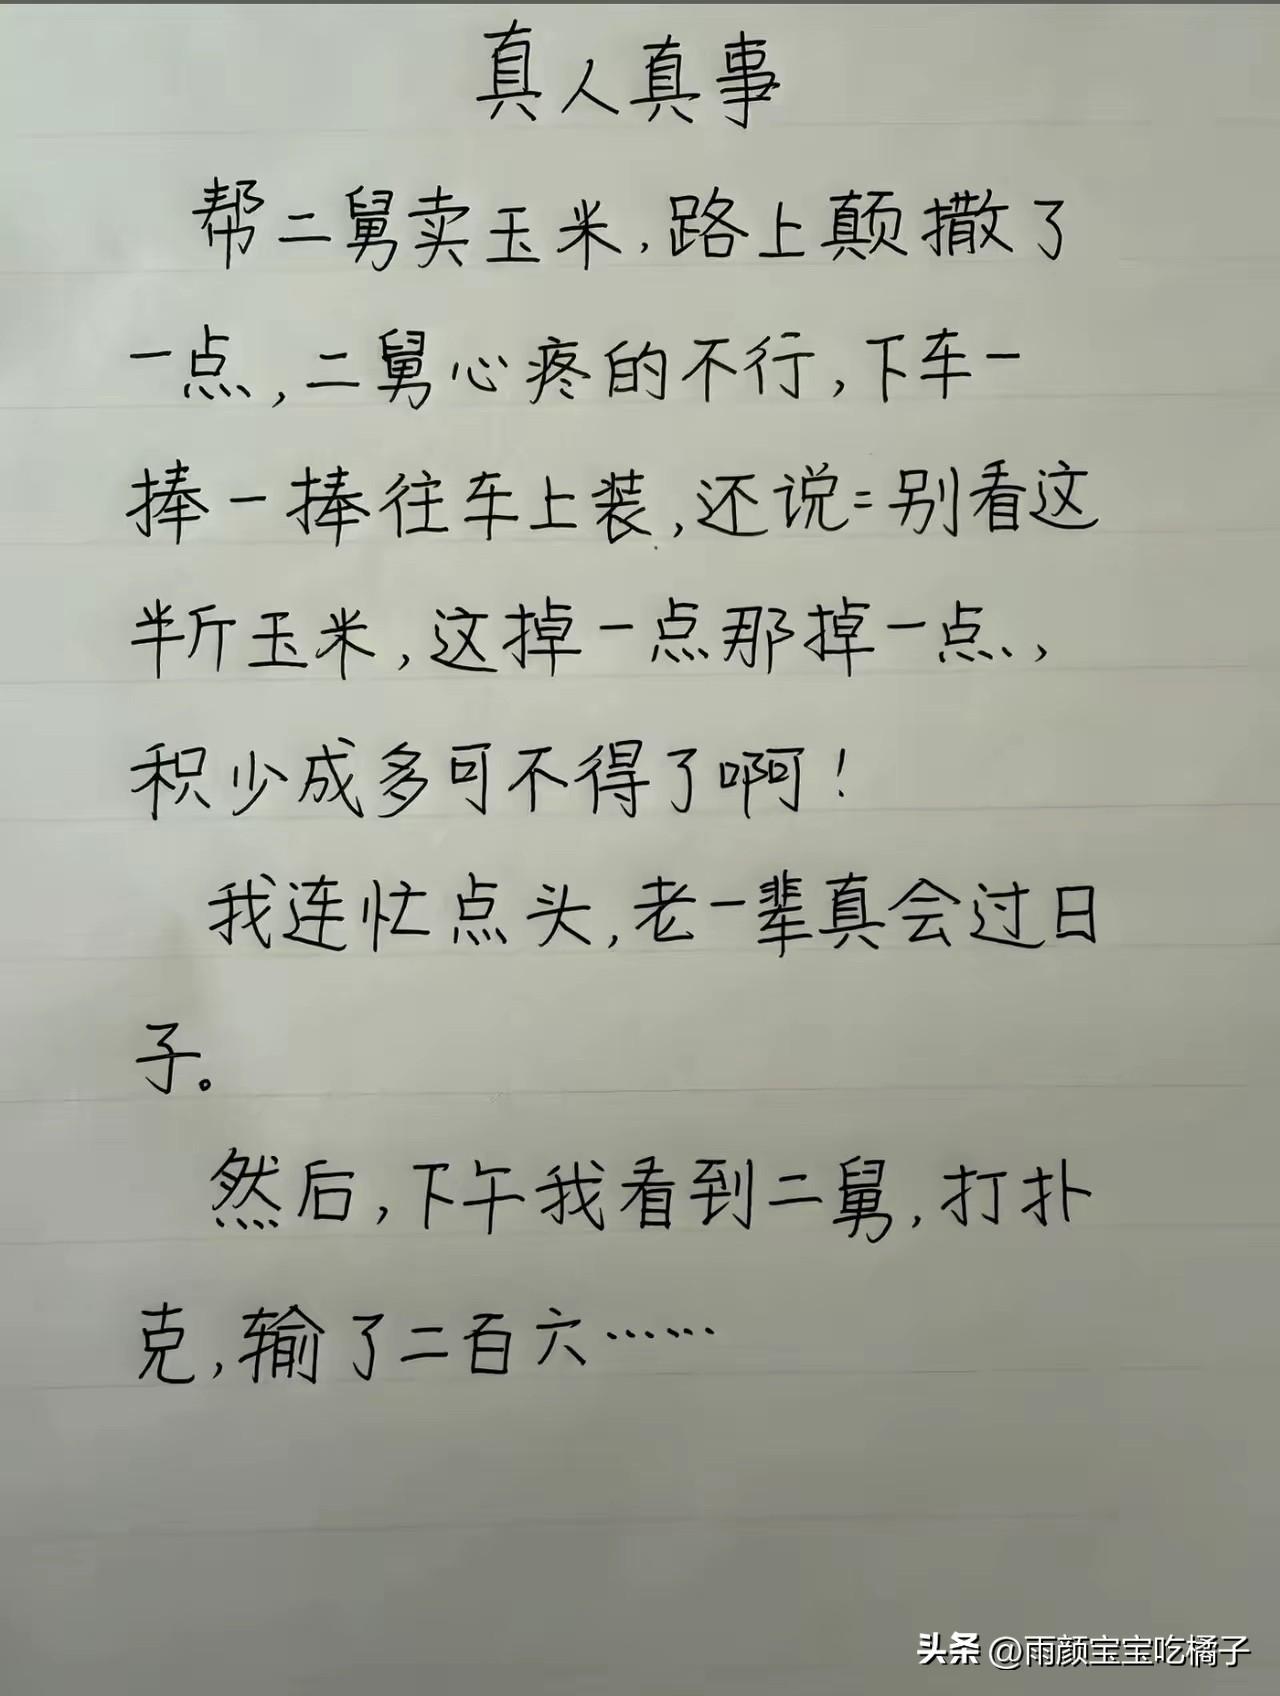 真人真事
帮二舅卖玉米,路上颠撒了
一点,二舅心疼的不行,下车一
捧一捧往车上装,还说:别看这
半斤玉米,这掉一点那掉一点,
积少成多可不得了啊!
我连忙点头,老一辈真会过日
子。
然后,下午我看到二舅,打扑
克,输了二百六……
头条 @雨颜宝宝吃橘子